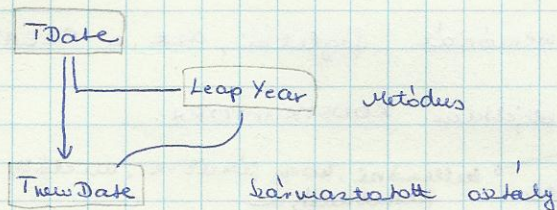 TDate
Leap Year Metódus
TnewDate származtatott osztály